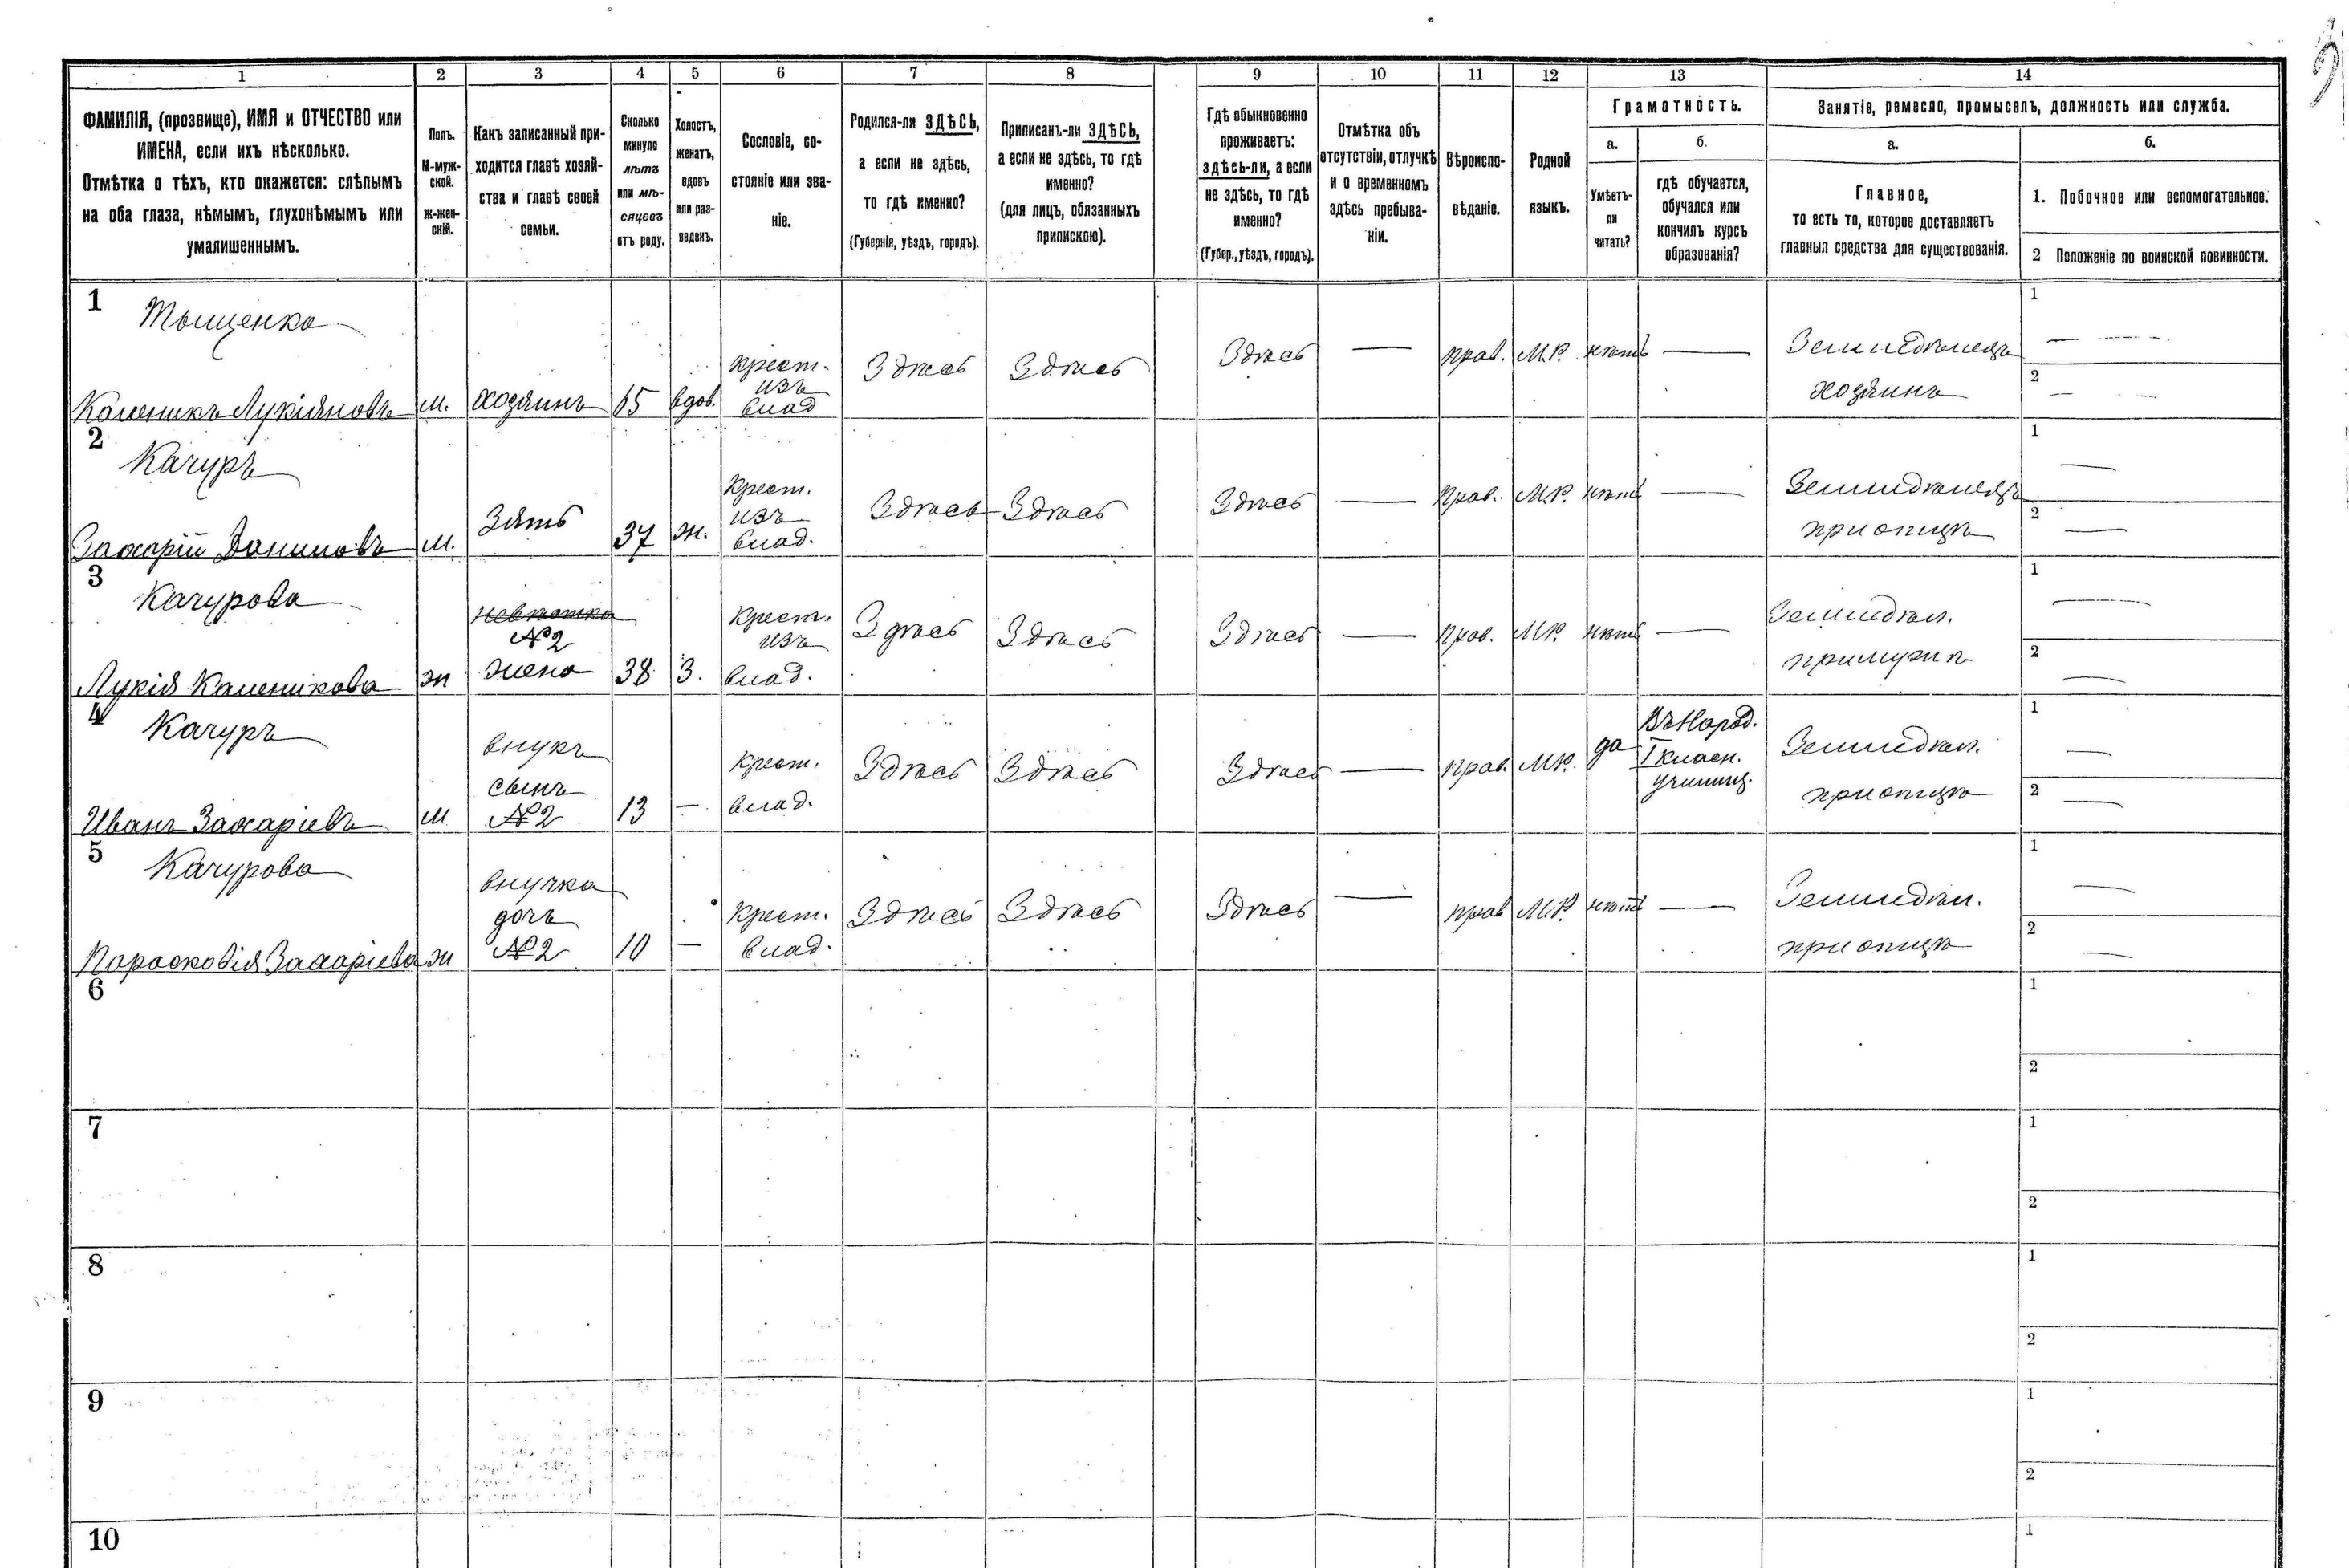 1 2 3 4 5 6 7 8 9 10 11 12 13 14
ФАМИЛІЯ, (прозвище), ИМЯ и ОТЧЕСТВО или
ИМЕНА, если ихъ нѣсколько.
Отмѣтка о тѣхъ, кто окажется: слѣпымъ
на оба глаза, нѣмымъ, глухонѣмымъ или
умалишеннымъ.
Полъ.
М-муж-
ской.
Ж-жен-
скій.
Какъ записанный при-
ходится главѣ хозяй-
ства и главѣ своей
семьи.
Сколько
минуло
лѣтъ
или мѣ-
сяцевъ
отъ роду.
Холостъ,
женатъ,
вдовъ
или раз-
веденъ.
Сословіе, со-
стояніе или зва-
ніе.
Родился-ли ЗДѢСЬ,
а если не здѣсь,
то гдѣ именно?
(Губернія, уѣздъ, городъ).
Приписанъ-ли ЗДѢСЬ,
а если не здѣсь, то гдѣ
именно?
(для лицъ, обязанныхъ
припискою).
Гдѣ обыкновенно
проживаетъ:
здѣсь-ли, а если
не здѣсь, то гдѣ
именно?
(Губер., уѣздъ, городъ).
Отмѣтка объ
отсутствіи, отлучкѣ
и о временномъ
здѣсь пребыва-
ніи.
Вѣроиспо-
вѣданіе.
Родной
языкъ.
Грамотность.
а.
Умѣетъ-
ли
читать?
б.
гдѣ обучается,
обучался или
кончилъ курсъ
образованія?
Занятіе, ремесло, промыселъ, должность или служба.
а.
Главное,
то есть то, которое доставляетъ
главныя средства для существованія.
б.
1. Побочное или вспомогательное.
2 Положеніе по воинской повинности.
1
Тыщенко
Каленикъ Лукіяновъ
м.
хозяинъ
65
вдов.
крест.
изъ
влад
Здѣсь
Здѣсь
Здѣсь
—
прав.
М.Р.
нѣтъ
—
Земледѣлецъ
хозяинъ
1 —
2 —
2
Качуръ
Захарій Даниловъ
м.
Зять
37
ж.
Крест.
изъ
влад.
Здѣсь
Здѣсь
Здѣсь
—
прав.
М.Р.
нѣтъ
—
Земледѣлецъ
при отцѣ
1 —
2 —
3
Качурова
Лукія Каленикова
ж
невѣстка
№2
жена
38
З.
Крест.
изъ
влад.
Здѣсь
Здѣсь
Здѣсь
—
прав.
М.Р.
нѣтъ
—
Земледѣл.
при мужѣ
1 —
2 —
4
Качуръ
Иванъ Захаріевъ
м
внукъ
сынъ
№2
13
—
крест.
влад.
Здѣсь
Здѣсь
Здѣсь
—
прав.
М.Р.
да
Въ Народ.
I класн.
училищ.
Земледѣл.
при отцѣ
1 —
2 —
5
Качурова
Парасковія Захаріева
ж
внучка
дочь
№2
10
—
крест.
влад.
Здѣсь
Здѣсь
Здѣсь
—
прав
М.Р.
нѣтъ
—
Земледѣл.
при отцѣ
1 —
2 —
6
1
2
7
1
2
8
1
2
9
1
2
10
1